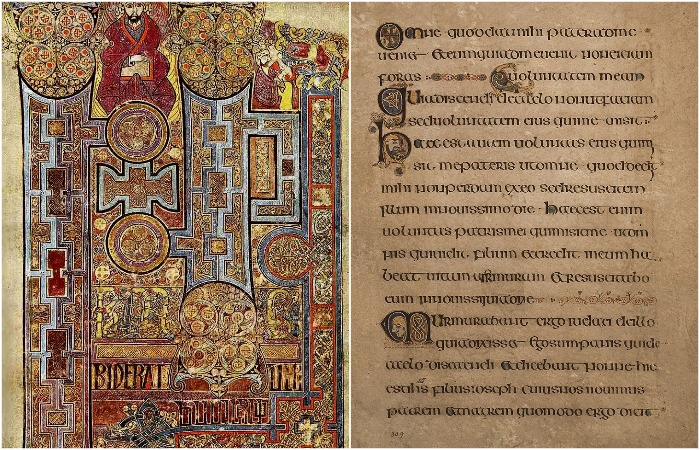 Omne quod dat mihi pater ad me
ueniet et eum qui ad me uenit non eiciam
foras uoluntatem meam
Quia discendi de caelo non ut faciam
sed uoluntatem eius qui me misit
Haec est autem uoluntas eius qui mi
sit me patris ut omne quod dedit
mihi non perdam ex eo sed resuscitem
illum in nouissimo die haec est enim
uoluntas patris mei qui misit me ut om
nis qui uidit filium et credit in eum ha
beat uitam et resuscitabo
eum in nouissimo die
Murmurabant ergo iudei de illo
quia dixisset ego sum panis qui de
caelo discendi et dicebant nonne hic
est ihs filius ioseph cuius nos nouimus
patrem et matrem quomodo ergo dicit
309